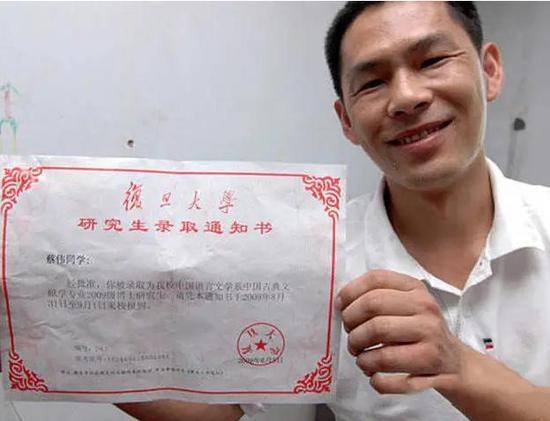 復旦大學
研究生录取通知书
蔡伟同学：
经批准，你被录取为我校中国语言文学系中国古典文
献学专业2009级博士研究生。请凭本通知书于2009年8月
31日至9月1日来校报到。
编号：
2009年6月5日